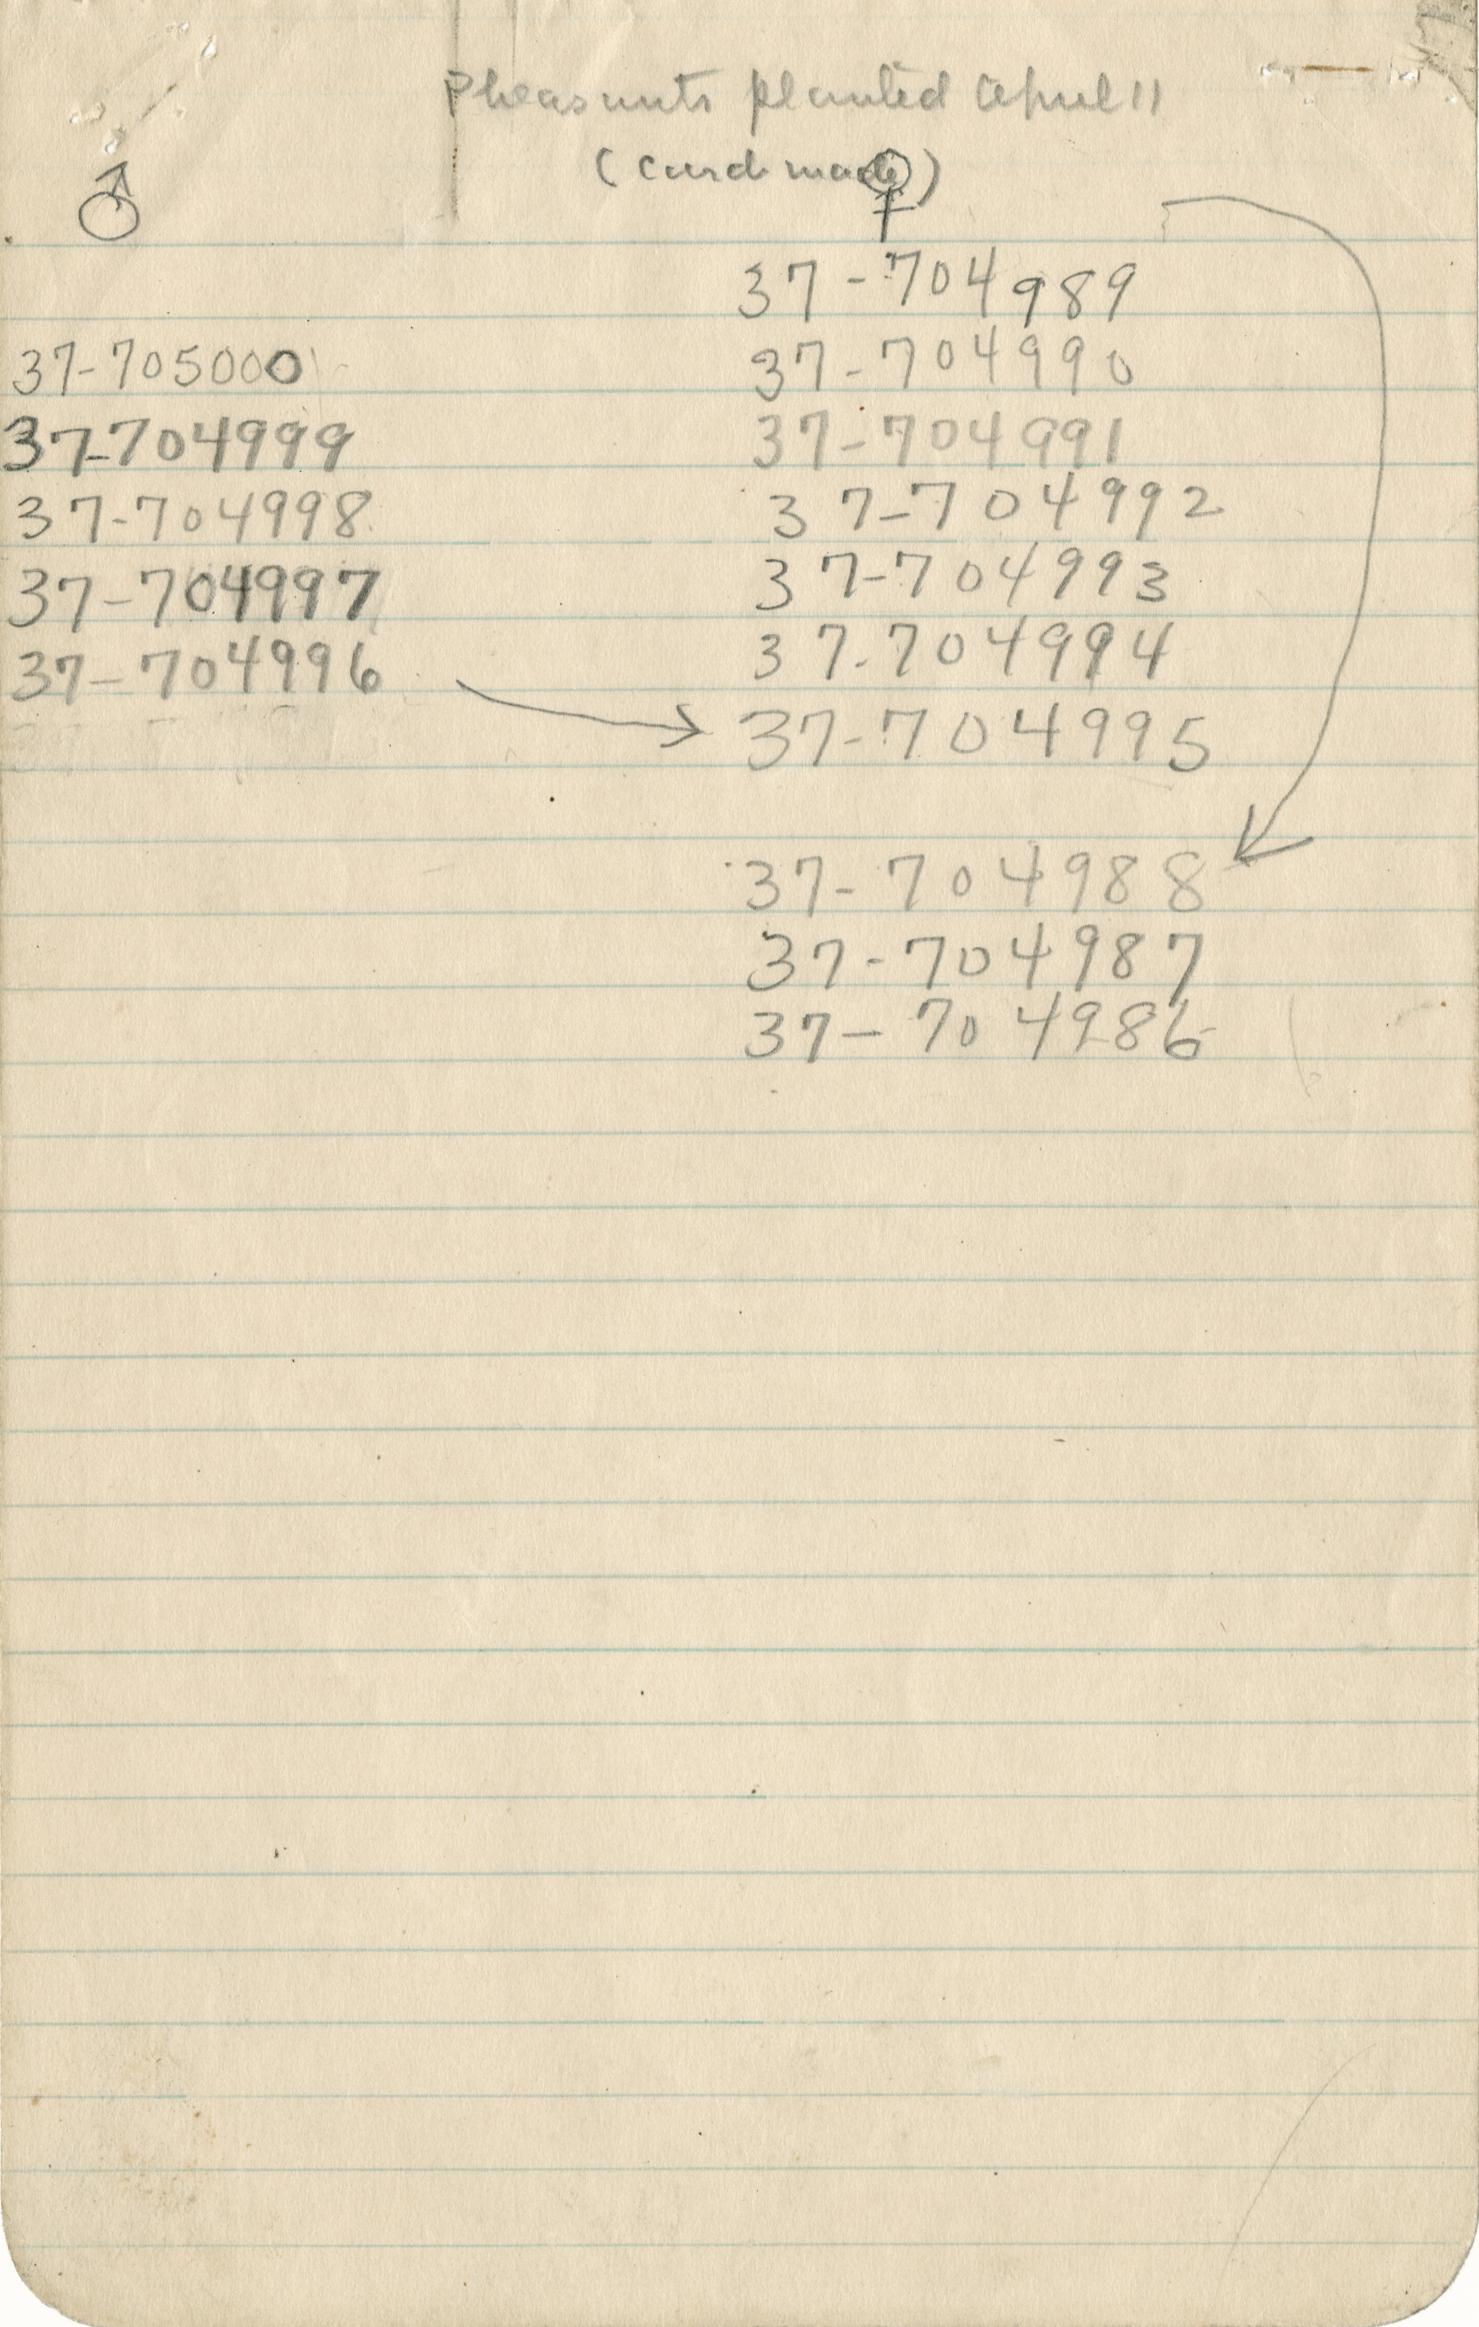 Pheasants planted April 11
(Card made)
♂
♀
37-704989
37-705000
37-704990
37-704999
37-704991
37-704998
37-704992
37-704997
37-704993
37-704996
37-704994
37-704995
37-704988
37-704987
37-704986